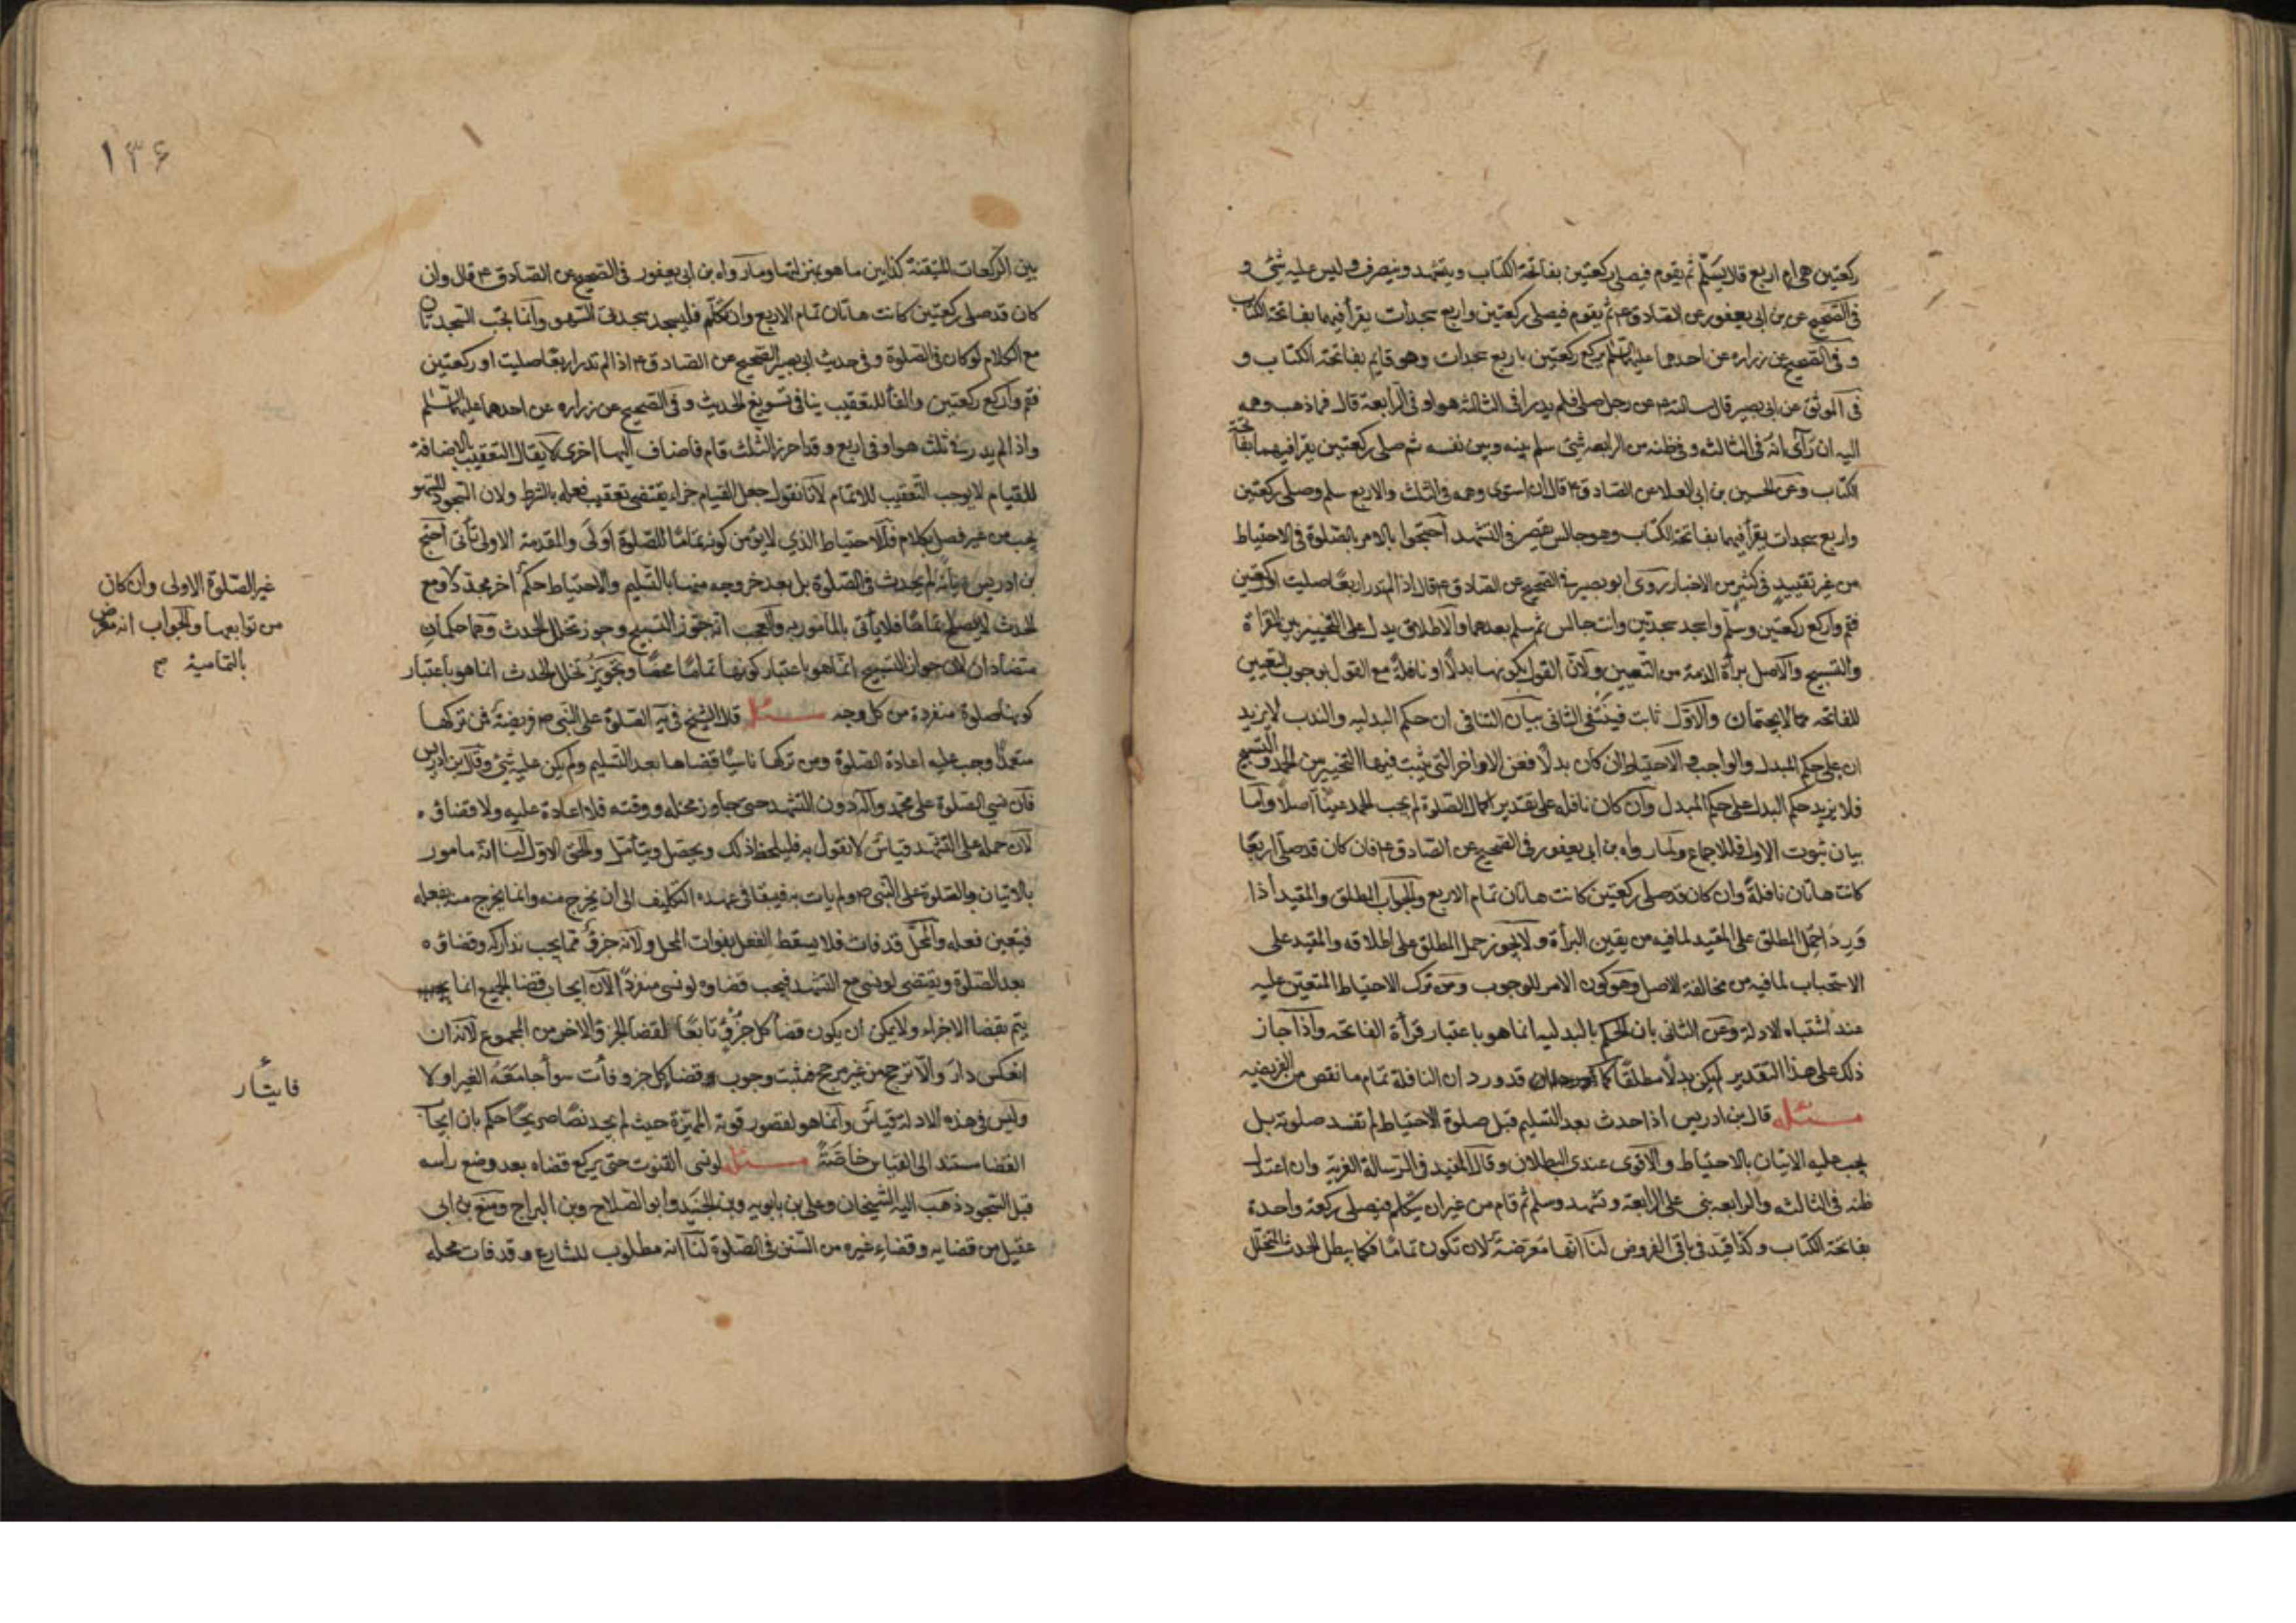 ركعتين هى ام اربع قال يسلّم ثم يقوم فيصلى ركعتين بفاتحة الكتاب ويتشهد وينصرف وليس عليه شئ و
فى الصحيح عن بن ابى يعفور عن الصادق ع ثم يقوم فيصلى ركعتين واربع سجدات يقرأ فيهما بفاتحة الكتاب
و فى الصحيح عن زراره عن احدهما عليهما السّلم يركع ركعتين باربع سجدات وهو قايم بفاتحة الكتاب و
فى الموثق عن ابى بصير قال سالته ع عن رجل صلى فلم يدر افى الثالثة هو او فى الرابعة قال فما ذهب وهمه
اليه ان رآى انّه فى الثالثه وفى ظنه من الرابعه شئ سلم بينه وبين نفسه ثم صلى ركعتين يقرا فيهما بفاتحة
الكتاب وعن الحسين بن ابى العلا عن الصادق ع قال ان استوى وهمه فى الثلث والاربع سلم وصلى ركعتين
واربع سجدات يقرأ فيهما بفاتحة الكتاب وهو جالس يقصر فى التشهد احتجوا بالامر بالصّلوة فى الاحتياط
من غير تقييد فى كثير من الاخبار روى ابو بصير فى الصحيح عن الصادق ع قال اذا لم تدر اربعًا صليت ام ركعتين
فقم واركع ركعتين وسلّم واسجد سجدتين وانت جالس ثم سلم بعدهما والاطلاق يدل على التخيير بين القراة
والتسبيح والاصل برأة الذمة من التعيين ولان القول بكونها بدلًا او نافلة مع القول بوجوب تعيين
الفاتحه مما لا يجتمعان والاوّل ثابت فينتفى الثانى بيان التنافى ان حكم البدليه والندب لا يزيد
ان على حكم المبدل والواجب والاحتياط ان كان بدلًا فعن الاواخر التى يثبت فيها التخيير بين الحمد والتسبيح
فلا يزيد حكم البدل على حكم المبدل وان كان نافله على تقدير اكمال الصّلوة لم يجب الحمد عينًا اصلًا واما
بيان ثبوت الاول فللاجماع ولما رواه بن ابى يعفور فى الصحيح عن الصادق ع فان كان قد صلى اربعًا
كانت هاتان نافلةً وان كان قد صلى ركعتين كانت هاتان تمام الاربع والجواب المطلق والمقيد اذا
وَردَ احمل المطلق على المقيد لما فيه من يقين البرأة ولا يجوز حمل المطلق على اطلاقه والمقيد على
الاستحباب لما فيه من مخالفة الاصل وهو كون الامر للوجوب ومن ترك الاحتياط المتعين عليه
عند اشتباه الادلة وعن الثانى بان الحكم بالبدليه انما هو باعتبار قرأة الفاتحه واذا جاز
ذلك على هذا التقدير لم يكن بدلًا مطلقًا كما قد ورد ان النافلة تمام ما نقص من الفريضه
مسئله قال بن ادريس اذا احدث بعد التسليم قبل صلوة الاحتياط لم تفسد صلوته بل
يجب عليه الاتيان بالاحتياط والاقوى عندى البطلان وقال المفيد فى الرسالة الغرية وان اعتدل
ظنه فى الثالثه والرابعه بنى على الرابعة وتشهد وسلم ثم قام من غير ان يتكلم فيصلى ركعة واحدة
بفاتحة الكتاب وكذا قيّد فى باقى الفروض لنا انها معرضة لان تكون تمامًا فكما يبطل الحدث المتخلّل
١٣۶
بين الركعات المتيقنة كذا بين ما هو بمنزلتها وما رواه بن ابى يعفور فى الصحيح عن الصادق ع قال وان
كان قد صلى ركعتين كانت هاتان تمام الاربع وان تكلّم فليسجد سجدتى السهو وانما تجب السجدتان
مع الكلام لو كان فى الصلوة وفى حديث ابى بصير الصحيح عن الصادق ع اذا لم تدر اربعًا صليت او ركعتين
فقم واركع ركعتين والفأ للتعقيب ينافى تسويغ الحديث وفى الصحيح عن زراره عن احدهما عليهما السّلم
واذا لم يدر فى ثلث هو او فى اربع وقد احرز الثلث قام فاضاف اليها اخرى لا يقال التعقيب بالاضافة
للقيام لا يوجب التعقيب للاتمام لانا نقول جعل القيام جزاء يقتضى تعقيب فعله بالشرط ولان السجود للسهو
يجب من غير فصل بكلام فالاحتياط الذي لا يؤمن كونه تمامًا للصّلوة اَولى والمقدمة الاولى تأتى احتج
بن ادريس بانّه لم يحدث فى الصّلوة بل بعد خروجه منها بالتسليم والاحتياط حكم اخر مجدد لا ومع
الحدث فلا يأتى بالمأموربه والعجب انه جوّز التسبيح وجوز تخلل الحدث وهما حكمان
متضادان لان جواز التسبيح انّما هو باعتبار كونها تمامًا محضًا وتجويز تخلل الحدث انما هو باعتبار
كونها صلوة منفردة من كل وجه مسئله قال الشيخ فى يه الصّلوة على النبى ص فريضة فمن تركها
متعمدًا وجب عليه اعادة الصلوة ومن تركها ناسيًا قضاها بعد التسليم ولم يكن عليه شئ وقال بن ادريس
فان نسى الصلوة على محمد واله دون التشهد حتى جاوز محله ووقته فلا اعادة عليه ولا قضاؤه
لان حمله على التشهد قياس لا نقول به فليلحظ ذلك ويحصّل ويتأمل والحق الاول لنا انّه مامور
بالاتيان بالصلوة على النبى ص ولم يات به فيبقا فى عهده التكليف الى ان يخرج منه وانما يخرج منه بفعله
فيتعين فعله والمحلّ قد فات فلا يسقط الفعل بفوات المحل ولانّه جزؤ مما يجب تداركه وقضاؤه
بعد الصّلوة ويقتضى لو نسى مع التشهد فيجب قضاوه لو نسى منفردًا لان ايجاب قضا الجميع انما
يتم بقضا الاجزاء ولا يمكن ان يكون قضأ كل جزؤ تابعًا لقضا الجزؤ الاخر من المجموع لانّه ان
انعكس دارَ والّا ترجح من غير مرجح فثبت وجوب قضا كل جزو فأت سوأ جامعَهُ الغير او لا
وليس فى هذه الادلة قياسٌ وانما هو لقصور قوته المميّزة حيث لم يجد نصًا صريحًا حكم بان ايجاب
القضا مستند الى القياس خاصّةً مسئله لو نسى القنوت حتى يركع قضاه بعد وضع رأسه
قبل السّجود ذهب اليه الشيخان وعلى بن بابويه وبن الجنيد وابو الصلاح وبن البراج ومنع بن ابى
عقيل من قضايه وقضاءِ غيره من السّنن فى الصّلوة لنا انه مطلوب للشارع وقد فات محله
غير الصّلوة الاولى وان كان
من توابعها والجواب انه معرض
بالتمامية صح
فايتأر